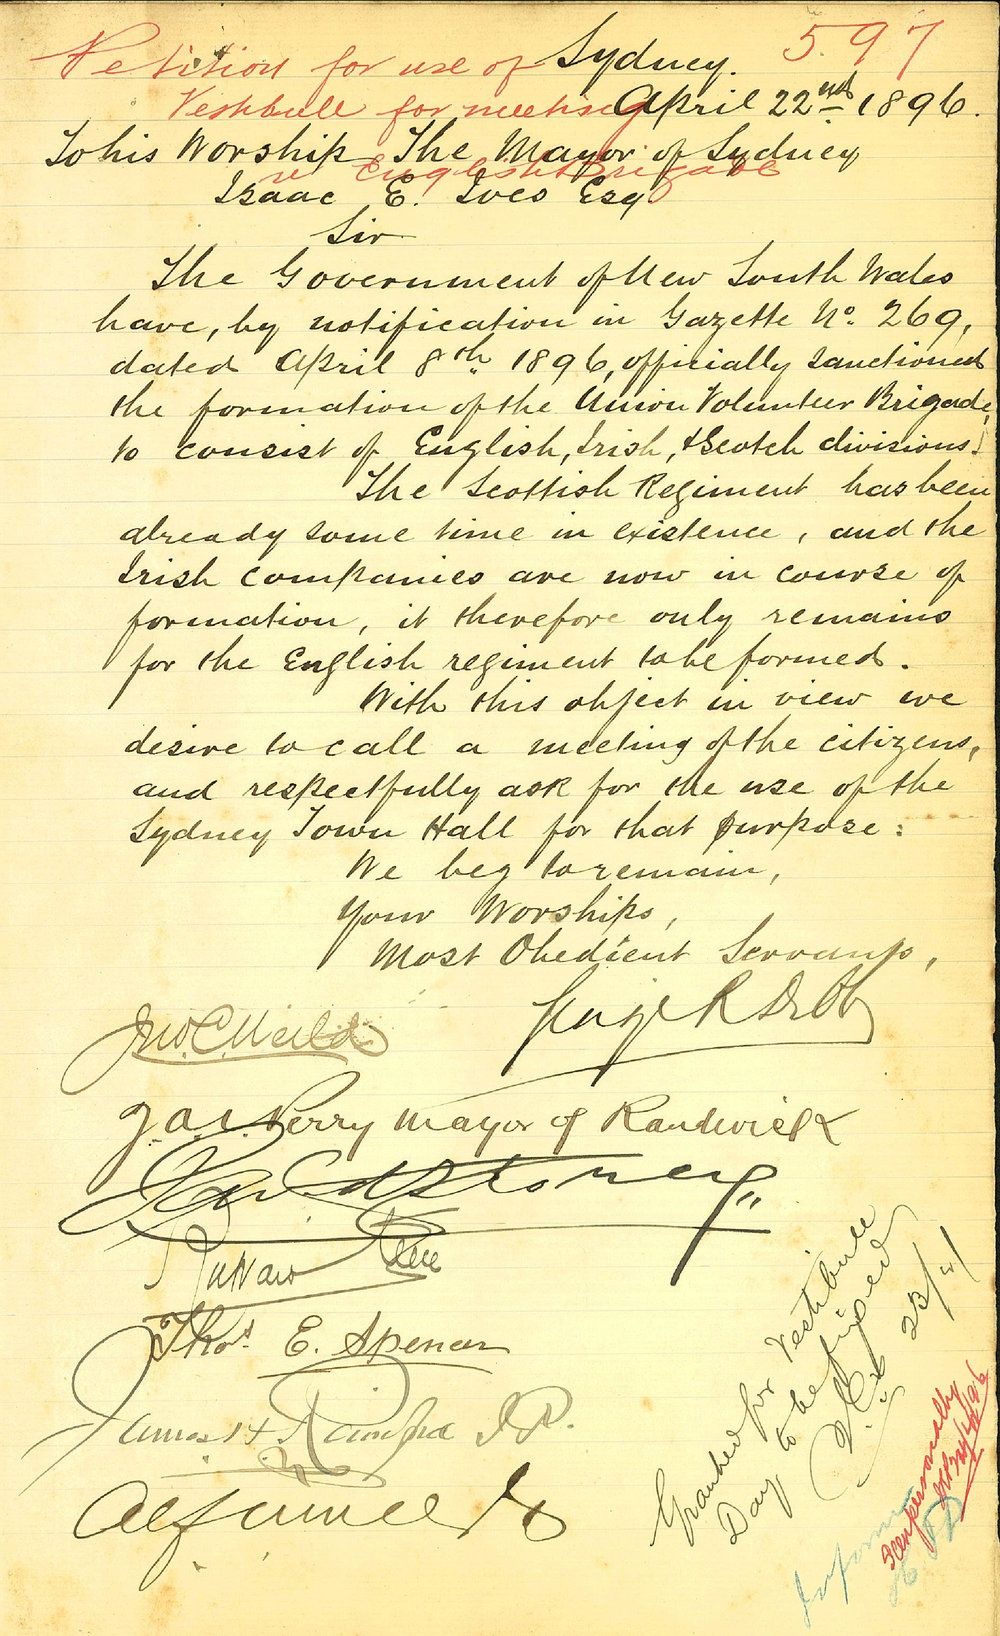 597
Petition for use of
Vestibule for meeting
re English Brigade
Sydney.
April 22nd 1896.
To his Worship The Mayor of Sydney
Isaac E. Ives Esq
Sir
The Government of New South Wales
have, by notification in Gazette No. 269,
dated April 8th 1896, officially sanctioned
the formation of the Union Volunteer Brigade,
to consist of English, Irish, & Scotch divisions.
The Scottish Regiment has been
already some time in existence, and the
Irish Companies are now in course of
formation, it therefore only remains
for the English regiment to be formed.
With this object in view we
desire to call a meeting of the citizens,
and respectfully ask for the use of the
Sydney Town Hall for that purpose:
We beg to remain,
Your Worships,
Most Obedient Servants,
George R Dibbs
Jno. C. Neild
Perry Mayor of Randwick
Thos. E. Spencer
James H J.P.
Granted for Vestibule
Day to be fixed
23/4/
Informed
Seen personally